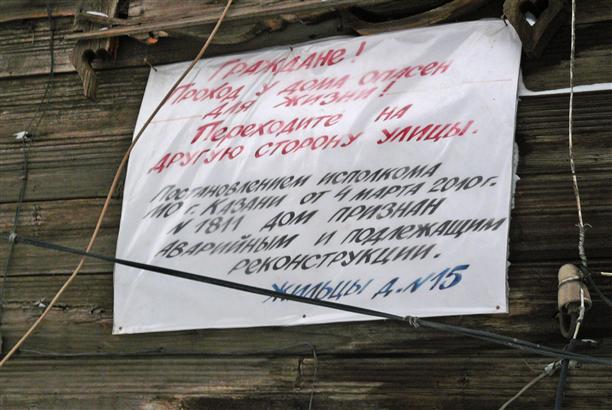 Граждане!
Проход у дома опасен
для жизни!
Переходите на
другую сторону улицы.
Постановлением исполкома
МО г. Казани от 4 марта 2010 г.
N 1811 дом признан
аварийным и подлежащим
реконструкции.
Жильцы д. N 15